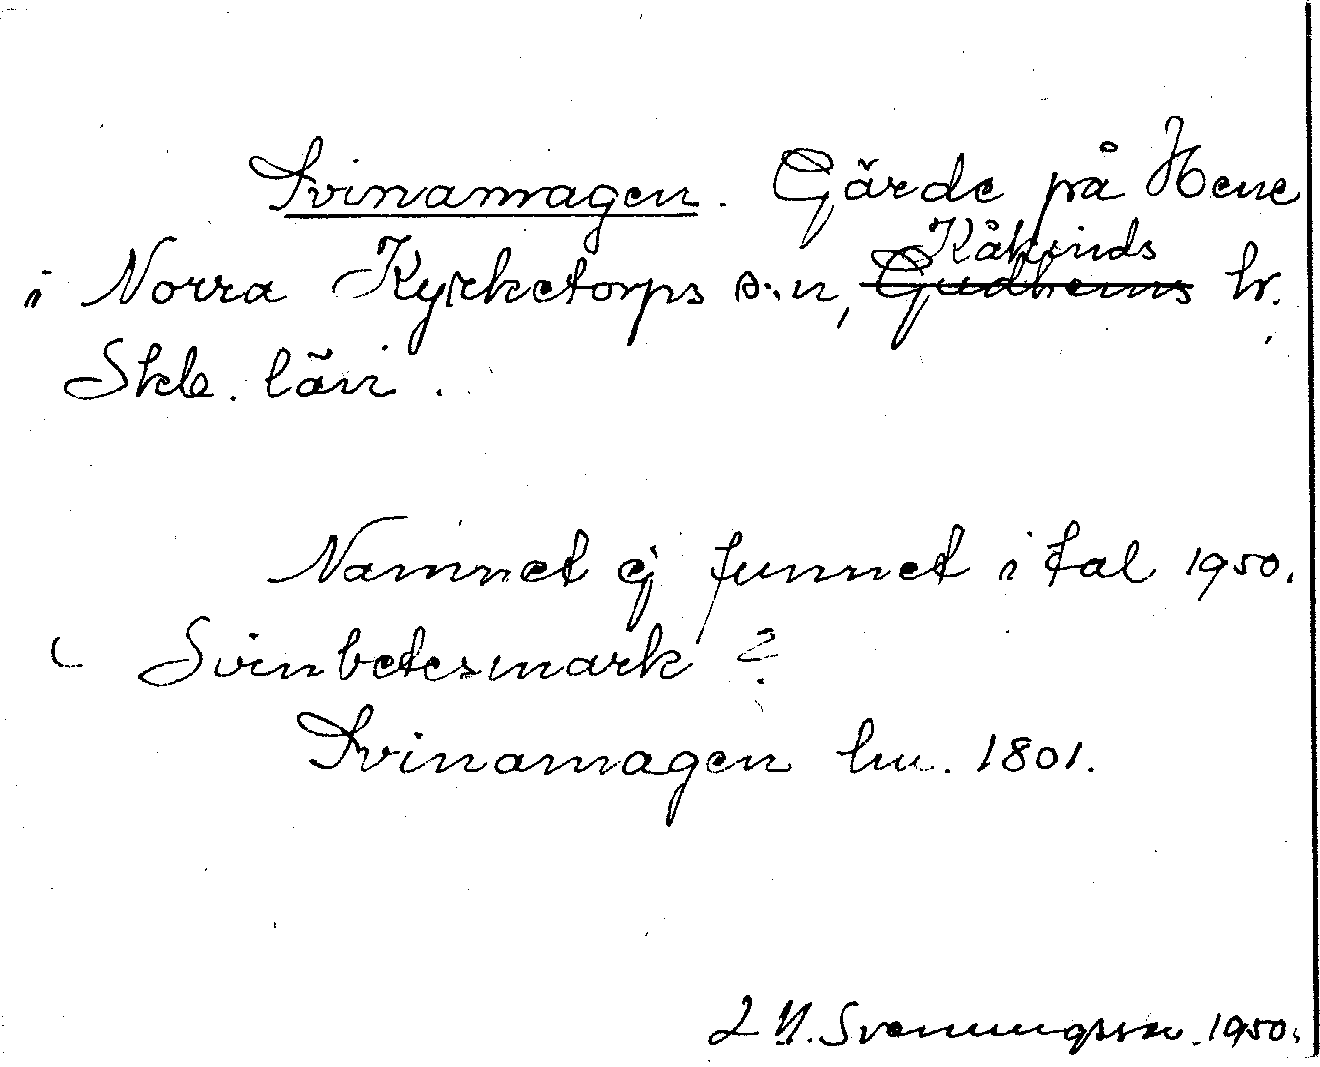 Svinamagen. Gärde på Hene
i Norra Kyrketorps s:n, Kåkinds Gudhems hr.
Skb. län.
Namnet ej funnet i tal 1950.
Svinbetesmark?
Svinamagen hm. 1801.
L N. Svenungsson. 1950.